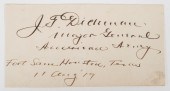 J T Dickman
Major General
American Army
Fort Sam Houston, Texas
11 Aug 19